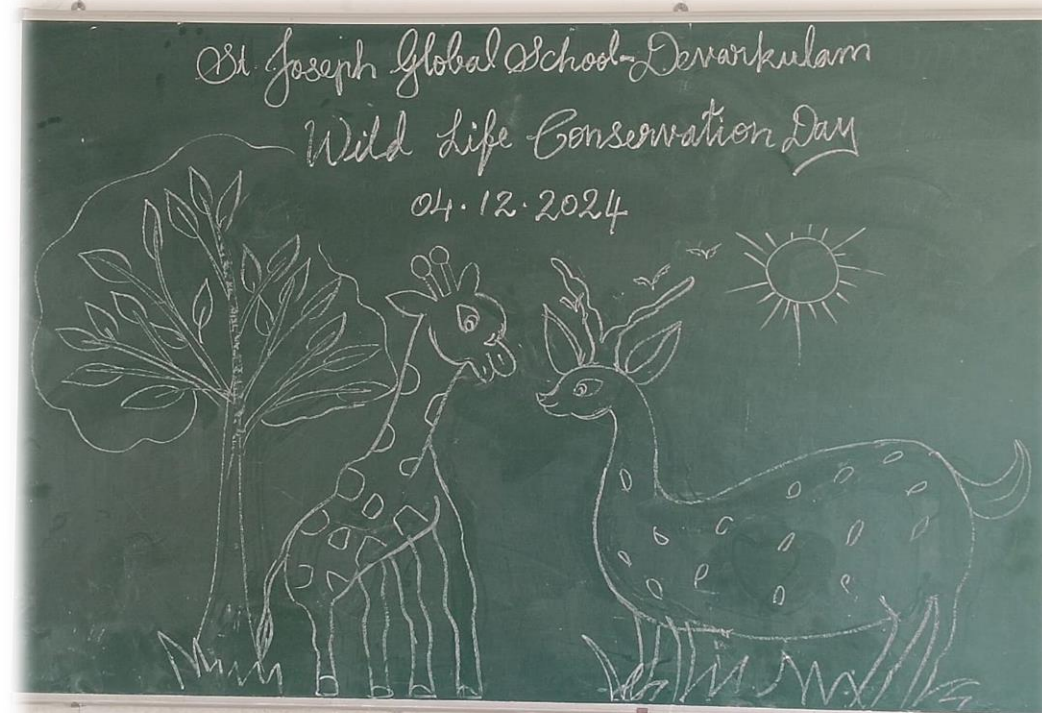 St. Joseph Global School-Devarkulam
Wild Life Conservation Day
04.12.2024